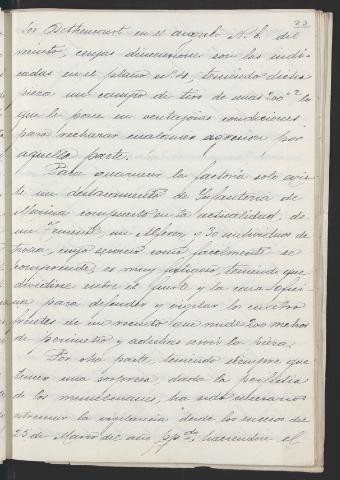 23
por Bethencourt en el angulo N.O. del
recinto, cuyas dimensiones son las indi-
cadas en el plano nº 4, teniendo dicha
pieza un campo de tiro de unos 200 m lo
que le pone en ventajosas condiciones
para rechazar cualquier agresion por
aquella parte.
Para guarnecer la factoria solo exis-
te un destacamento de Infanteria de
Marina compuesto en la actualidad, de
un teniente un Alferez y 30 individuos de
tropa, cuyo servicio como facilmente se
comprende, es muy fatigoso, teniendo que
dividirse entre el fuerte y la casa Espi-
na para defender y vigilar los cuatro
frentes de un recinto que mide 200 metros
de perimetro y además servir la pieza.
Por otra parte, teniendo siempre que
temer una sorpresa, dada la perfidia
de los musulmanes, ha sido necesario
extremar la vigilancia desde los sucesos del
25 de Marzo del año ppdo, haciendose el